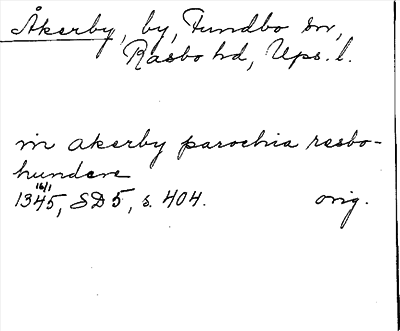 Åkerby, by, Tundbo sn,
Rasbo hd, Ups. l.
in akerby parochia rasbo-
hundere
16/1
1345, SD 5, s. 404. orig.